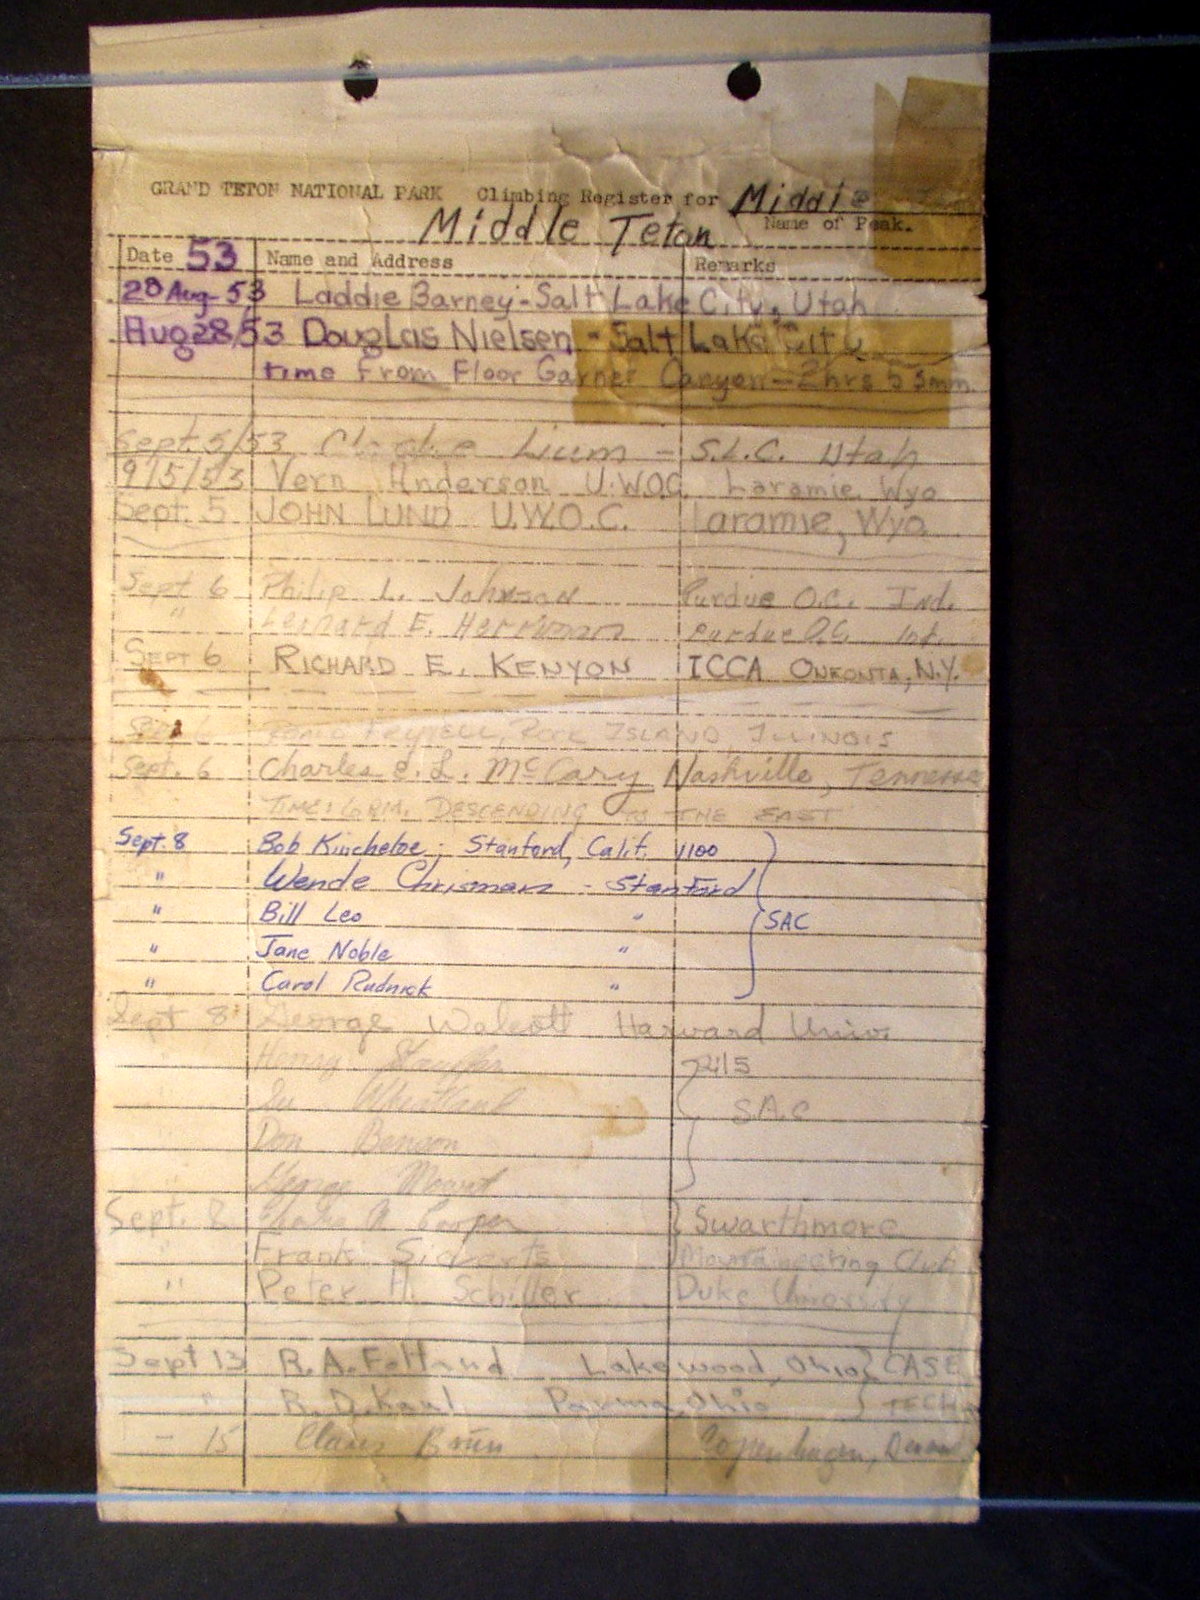 GRAND TETON NATIONAL PARK Climbing Register for Middle
Middle Teton Name of Peak.
Date 53 Name and Address Remarks
28 Aug-53 Laddie Barney-Salt Lake City, Utah
Aug 28/53 Douglas Nielsen - Salt Lake City
time From Floor Garnet Canyon-2hrs 53mm
Sept. 5/53 Lium - S.L.C. Utah
9/5/53 Vern Anderson U.W.O.C. Laramie Wyo
Sept. 5 JOHN LUND U.W.O.C. Laramie, Wyo.
Sept 6 Philip L. Johnson Purdue O.C. Ind.
" Leonard E. Herriman Purdue O.C. Ind.
SEPT 6 RICHARD E. KENYON ICCA ONEONTA, N.Y.
Sept 6 ROCK ISLAND, ILLINOIS
Sept. 6 Charles E. L. McCary Nashville, Tennessee
TIME: 6 P.M. DESCENDING TO THE EAST
Sept. 8 Bob Kincheloe; Stanford, Calif. 1100
" Wende Chrisman - Stanford
" Bill Leo " SAC
" Jane Noble "
" Carol Rudnick "
Sept 8 George Wolcott Harvard Univ.
Henry 2115
S.A.C
Don Benson
George Mount
Sept. 8 Cooper Swarthmore
" Frank Sieverts Mountaineering Club
" Peter H. Schiller Duke University
Sept 13 R.A. Lakewood, Ohio CASE
" R.D. Kaul Parma, Ohio TECH
- 15 Claus Bruun Copenhagen,